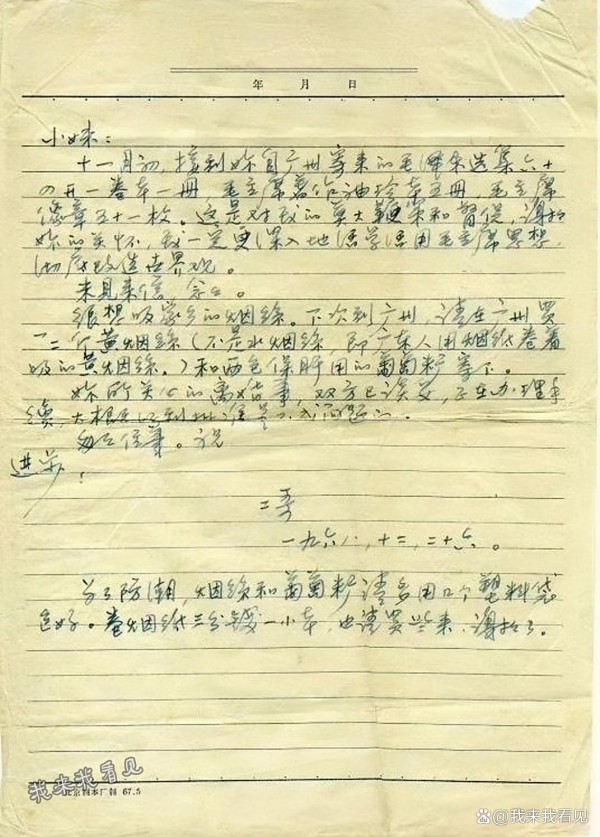 年 月 日
小妹：
十一月初，接到妳自广州寄来的毛泽东选集六十
四开一卷本一册，毛主席著作袖珍本五册，毛主席
像章五十一枚。这是对我的莫大鞭策和督促，谢谢
妳的关怀，我一定更深入地活学活用毛主席思想，
彻底改造世界观。
未见来信，念念。
很想吸家乡的烟丝。下次到广州，请在广州买
一、二个黄烟丝（不是水烟丝，即广东人用烟纸卷着
吸的黄烟丝。）和两包保肝用的葡萄籽寄下。
妳所关心的离婚事，双方已谈妥，正在办理手
续，大根
匆匆信笔。祝
进步！
二哥
一九六八，十二，二十六。
为了防潮，烟丝和葡萄籽请多用口个塑料袋
包好。卷烟纸三分钱一小本，也请买些来，谢谢了。
我来我看见
北京制本厂制 67.5
@我来我看见